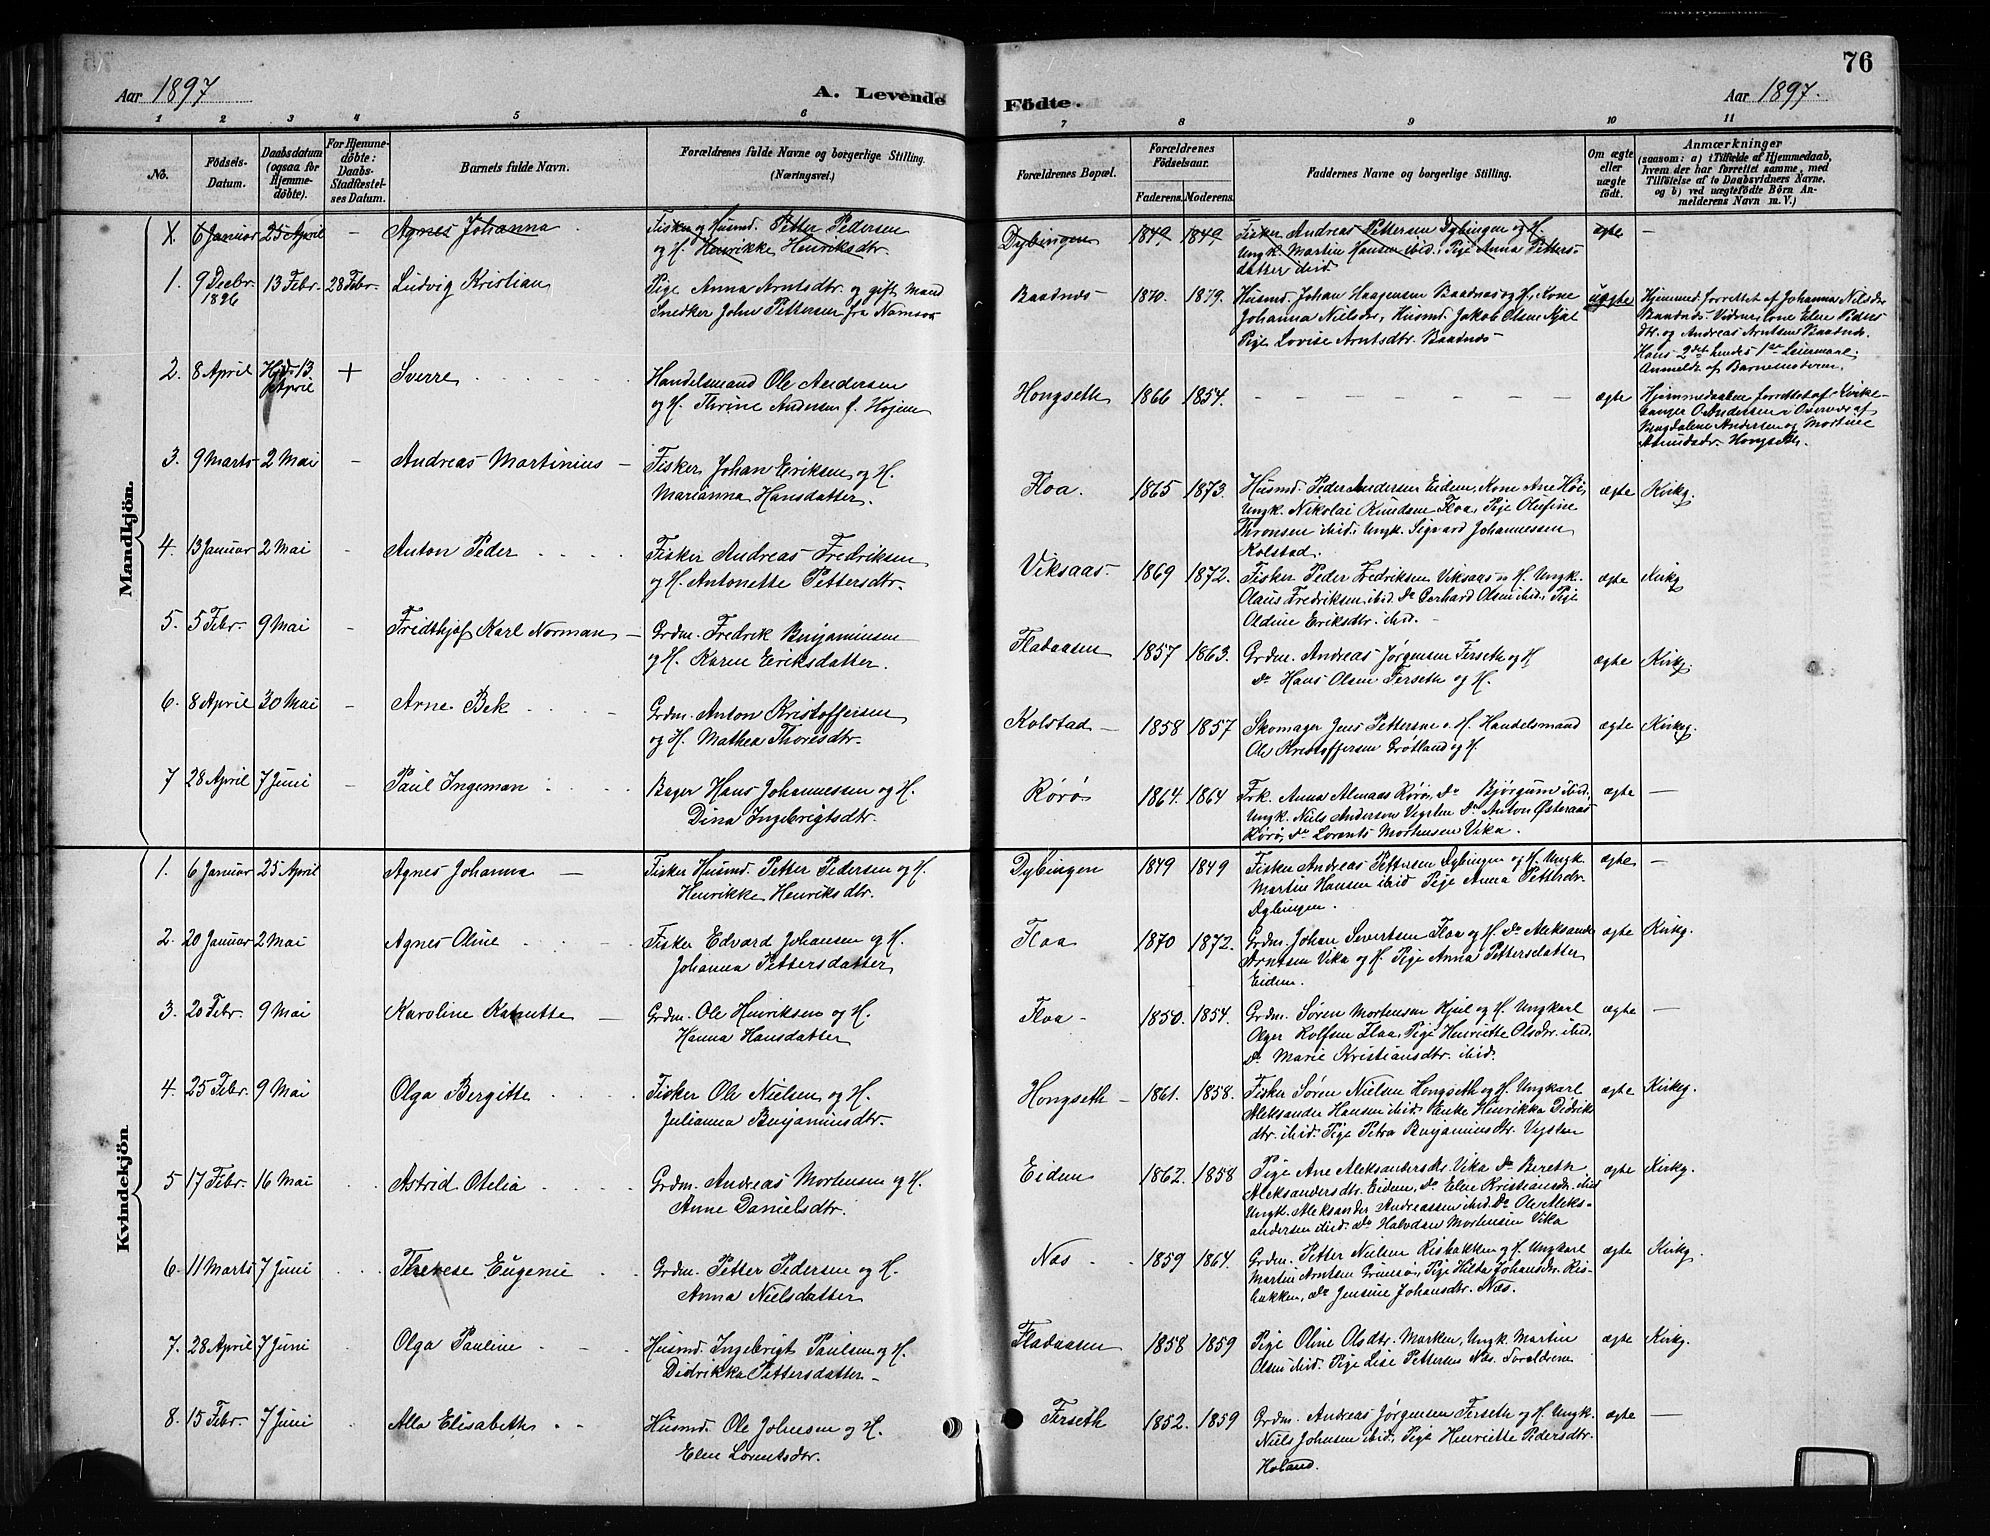 76
Aar 1897
A. Levende
Födte.
Aar 1897.
1 2 3 4 5 6 7 8 9 10 11
No.
Födsels-Datum.
Daabsdatum (ogsaa for Hjemme-döbte).
For Hjemme-döbte: Daabs-Stadfæstel-ses Datum.
Barnets fulde Navn.
Forældrenes fulde Navne og borgerlige Stilling. (Næringsvei.)
Forældrenes Bopæl.
Forældrenes Födselsaar.
Faderens. Moderens.
Faddernes Navne og borgerlige Stilling.
Om ægte eller uægte födt.
Anmærkninger
(saasom: a) i Tilfælde af Hjemmedaab, hvem der har forrettet samme, med Tilföielse af to Daabsvidners Navne, og b) ved uægtefödte Börn An-melderens Navn m. V.)
Mandkjön.
X. 6 Januar 25 April - Agnes Johanna . Fisker og Husmd. Petter Pedersen
og H. Henrikke Henriksdtr. Dybingen 1849 1849 Fisker Andreas Pettersen Dybingen og H.
Ungk. Martin Hansen ibid. Pige Anna Petters-
datter ibid. ægte -
1. 9 Decbr. 1896 13 Febr. 28 Febr. Ludvig Kristian Pige Anna Arntsdtr. og gift Mand
Snedker John Pettersen fra Namsos Baadnæs 1870. 1879. Husmd. Johan Haagensen Baadnæs og H, Kone
Johanna Nielsdr, Husmd. Jakob Olsen
Pige Lovise Arntsdtr. Baadnæs uægte Hjemmed. forrettet af Johanna Nielsdr
Baadnæs Vidneri
og Andreas Arntsen Baadnæs.
Hans 2det hendes 1ste Leiermaal.
Anmeldt af Barnemoderen.
2. 8 April Hjd. 13 April + Sverre . . . . . Handelsmand Ole Andersen
og H. Thrine Andersen f. Hojem Hongseth 1866 1854. - - - - - - - ægte Hjemmedaaben forrettet af Kirke-
sanger O Andersen i Overvær af
Magdalene Andersen og Martine
Hongseth.
3. 9 Marts 2 Mai - Andreas Martinius - Fisker Johan Eriksen og H.
Marianna Hansdatter. Floa. 1865 1873. Husmd. Peder Andersen Eidem, Kone Ane
Ungk. Nikolai Knudsen Floa, Pige Olufine
Thronsen ibid. Ungk. Sigvard Johannessen
Kolstad. ægte Kirkg.
4. 13 Januar 2 Mai - Anton Peder . . . . Fisker Andreas Fredriksen
og H. Antonette Pettersdtr. Viksaas. 1869 1872. Fisker Peder Fredriksen Viksaas og H. Ungk.
Olaus Fredriksen ibid Do Gerhard Olsen ibid, Pige
Oldine Eriksdtr. ibid. - ægte Kirkg
5. 5 Febr. 9 Mai - Fridthjof Karl Norman - Grdm. Fredrik Benjaminsen
og H. Karen Eriksdatter. Fladaasen 1857 1863. Grdm. Andreas Jørgensen Ferseth og H
Do Hans Olsen Ferseth og H. ægte Kirkg.
6. 8 April 30 Mai - Arne Bek . . . . Grdm. Anton Kristoffersen
og H. Mathea Thoresdtr. Kolstad - 1858 1857 Skomager Jens Pettersen o. H. Handelsmand
Ole Kristoffersen Grøtland og H. ægte Kirkg.
7 28 April 7 Juni - Paul Ingeman . . . . Bager Hans Johannessen og H.
Dina Ingebrigtsdtr. Rørø 1864. 1864 Frk. Anna Almaas Rørø, Do Bjørgum ibid,
Ungk. Niels Andersen Vegsten Do Anton Østeraas
Rørø, Do Lorents Mortensen Vika. ægte -
Kvindekjön.
1. 6 Januar 25 April Agnes Johanna - Fisker Husmd. Petter Pedersen og H.
Henrikke Henriksdtr. Dybingen 1849 1849 Fisker Andreas Pettersen Dybingen og H. Ungk.
Martin Hansen ibid Pige Anna Pettersdr.
Dybingen. ægte -
2. 20 Januar 2 Mai Agnes Oline . . . Fisker Edvard Johansen og H.
Johanna Pettersdatter Floa 1870 1872. Grdm. Johan Severtsen Floa og H. Do Aleksander
Arntsen Vika og H. Pige Anna Pettersdatter
Eidem. ægte Kirkg.
3. 20 Febr. 9 Mai Karoline Kanutte - Grdm. Ole Henriksen og H.
Hanna Hansdatter Floa - 1850. 1854. Grdm. Søren Mortensen Hjul og H. Ungkarl
Olger Rolfsen Floa, Pige Henriette Olsdr. ibid.
Do Marie Kristiansdtr. ibid. ægte -
4. 25 Febr. 9 Mai Olga Bergitte . . . Fisker Ole Nielsen og H.
Julianna Benjaminsdtr. Hongseth - 1861. 1858. Fisker Søren Nielsen Hongseth og H. Ungkarl
Aleksander Hansen ibid. Enke Henrikka Didrik
dtr. ibid. Pige Petra Benjaminsdtr. Vegsten ægte Kirkg.
5 17 Febr. 16 Mai Astrid Otelia . . . Grdm. Andreas Mortensen og H.
Anne Danielsdtr. Eidem 1862. 1858 Pige Ane Aleksandersdr. Vika Do Bereth
Aleksandersdtr. Eidem, Do Elen Kristiansdr. ibid
Ungk. Aleksander Andreassen ibid. Do Ole Aleks-
andersen ibid. Do Halvdan Mortensen Vika ægte Kirkg.
6. 11 Marts 7 Juni Therese Eugenie . . Grdm. Petter Pedersen og H.
Anna Nielsdatter Næs 1859 1864. Grdm. Petter Nielsen Risbakken og H. Ungkarl
Martin Arntsen Grimsø, Pige Hilda Johansdr. Ris-
bakken, Do Jensine Johansdtr. Næs. ægte Kirkg.
7. 28 April 7 Juni Olga Pauline . . Husmd. Ingebrigt Paulsen og H.
Didrikka Pettersdatter - Fladaasen 1858 1859 Pige Oline Olsdtr. Marken, Ungk. Martin
Olsen ibid. Pige Lise Pettersen Næs. Forældrene ægte Kirkg.
8. 15 Febr. 7 Juni Alla Elisabeth . . Husmd. Ole Johnsen og H.
Elen Lorentsdtr. Ferseth 1852. 1859 Grdm. Andreas Jørgensen Ferseth og H. Ungk.
Niels Johnsen ibid, Pige Henriette Pedersdtr.
Holand. ægte -